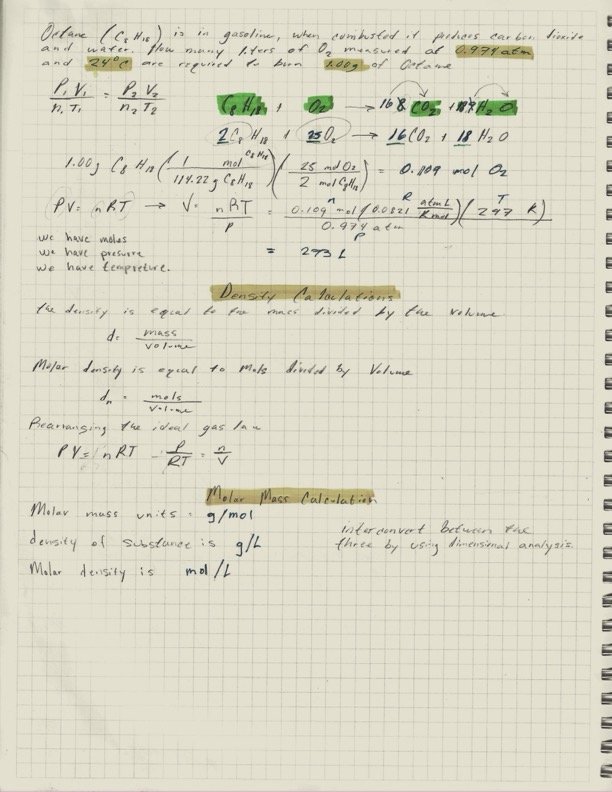 Octane (C8H18) is in gasoline, when combusted it produces carbon dioxide
and water. How many liters of O2 measured at 0.974 atm
and 24°C are required to burn 1.00g of Octane
P1 V1 / n1 T1 = P2 V2 / n2 T2
C8H18 + O2 → 16 8 CO2 + 9 H2O
2 C8H18 + 25 O2 → 16 CO2 + 18 H2O
1.00g C8H18 (1 mol C8H18 / 114.22g C8H18) (25 mol O2 / 2 mol C8H18) = 0.109 mol O2
PV = nRT → V = nRT / P = 0.109 n mol (0.0821 R atm L / K mol) (297 T K) / 0.974 atm P
we have moles
we have pressure = 2.73 L
we have tempreture.
Density Calculations
the density is equal to the mass divided by the volume.
d = mass / volume
Molar density is equal to Mols divided by Volume
dn = mols / volume
Rearranging the ideal gas law
PV = nRT - P / RT = n / V
Molar Mass Calculation
Molar mass units = g/mol
density of substance is g/L
Molar density is mol/L
interconvert between the
three by using dimensional analysis.